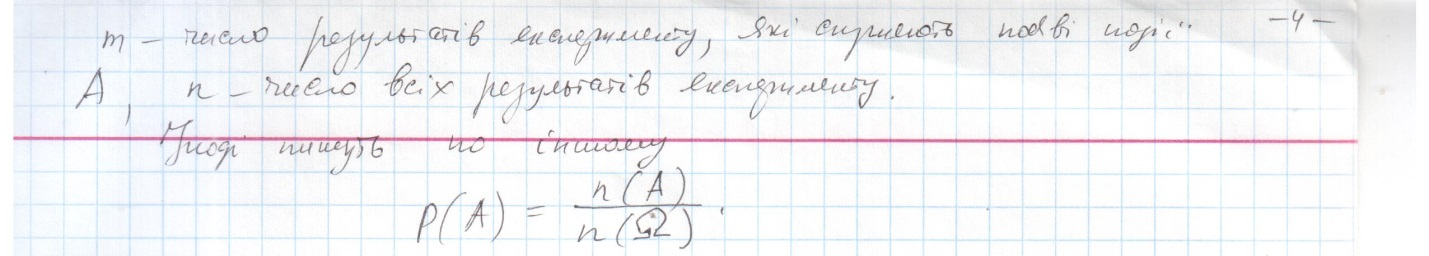 m – число результатів експерименту, які сприяють появі події –4–
A, n – число всіх результатів експерименту.
Іноді пишуть по іншому
P(A) = n(A) / n(Ω).